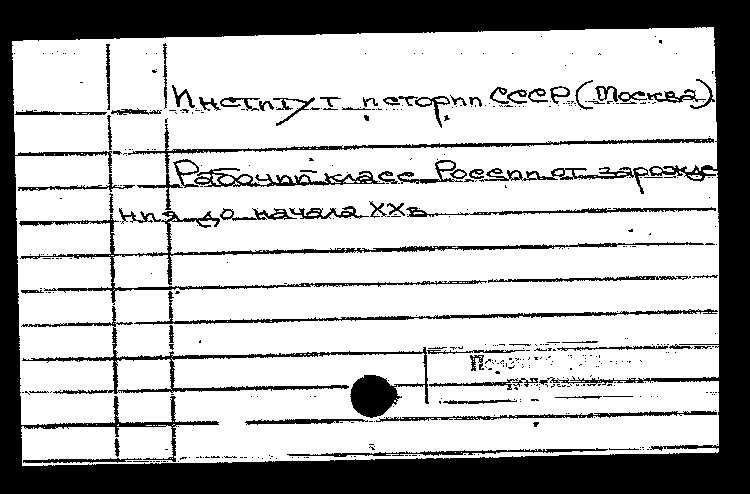 Институт истории СССР (Москва).
Рабочий класс России от зарожде
ния до начала XXв